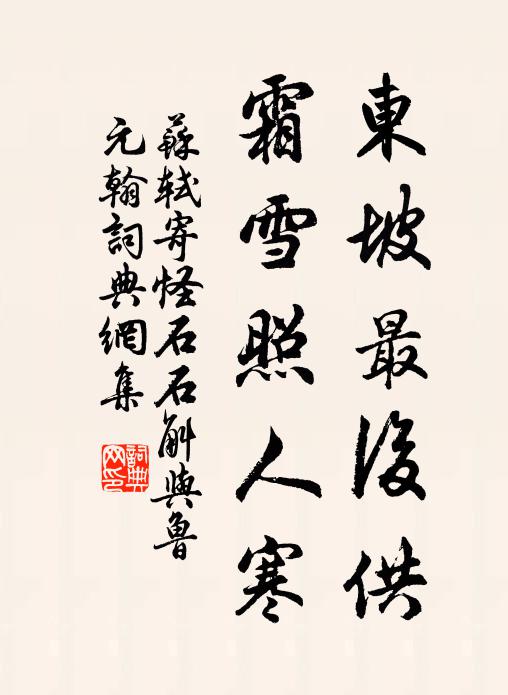 東坡最後供
霜雪照人寒
蘇軾寄怪石石斛與魯
元翰詞典網集
詞典
网印